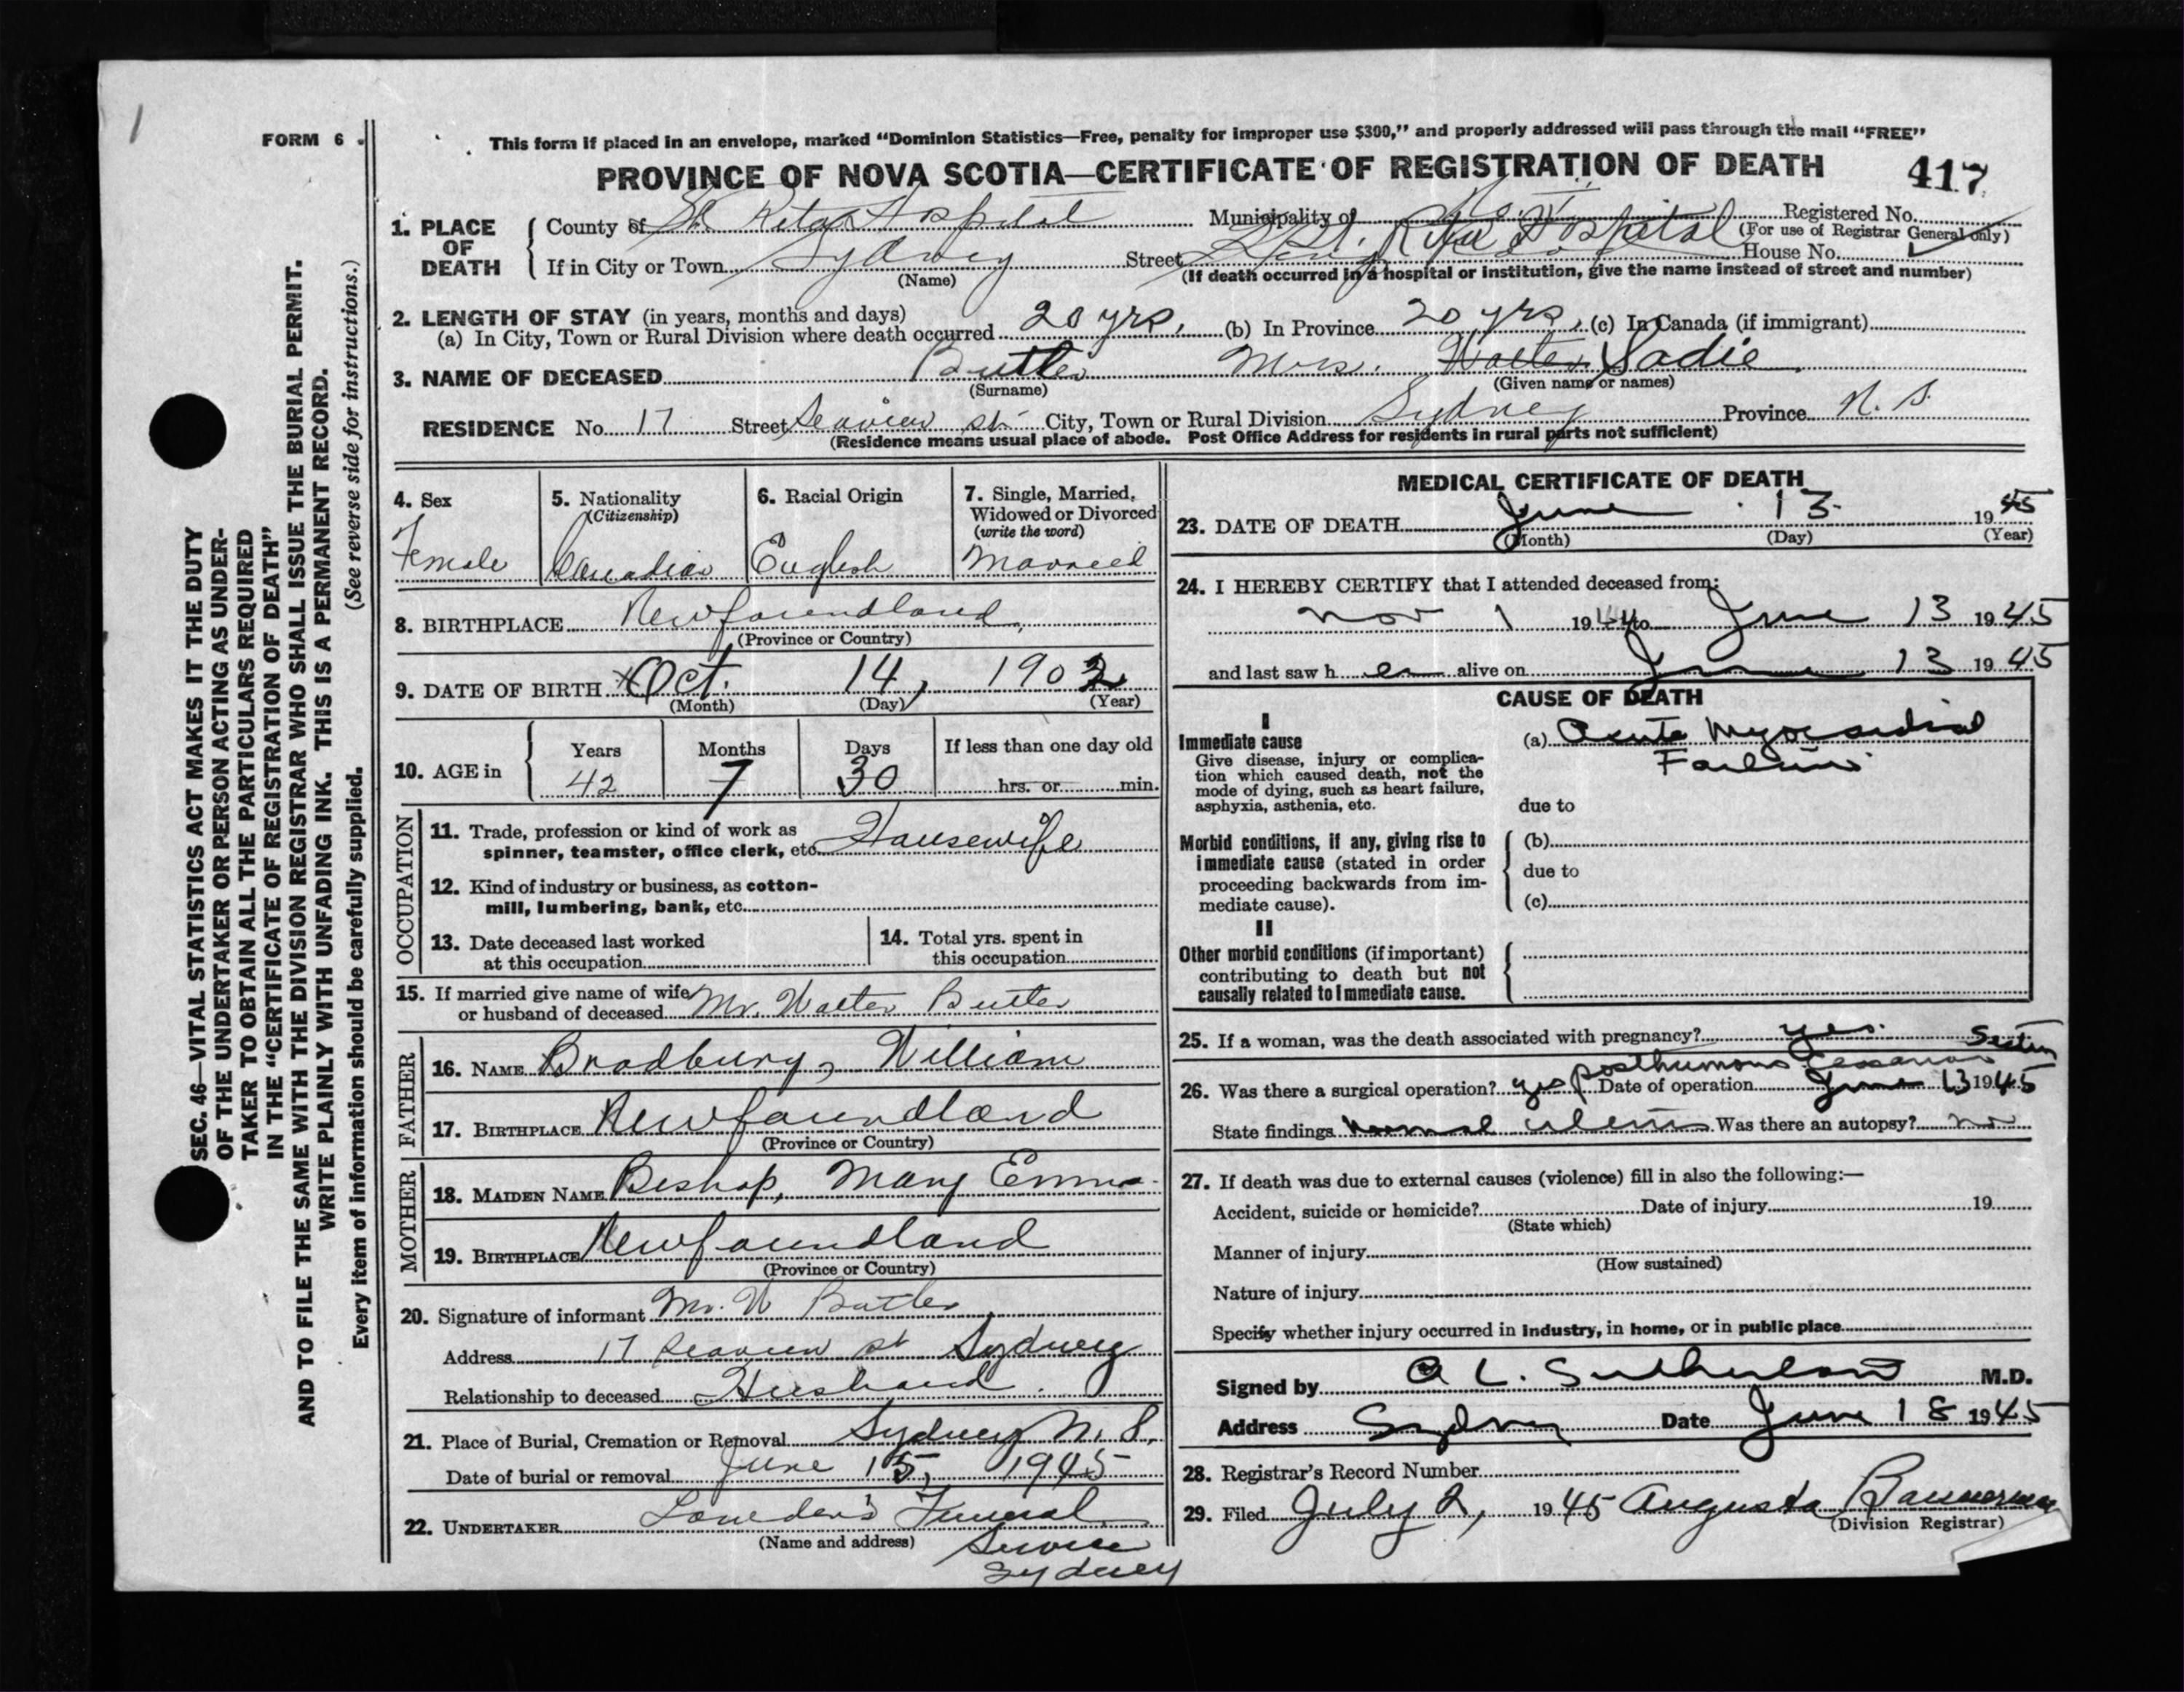 FORM 6.
This form if placed in an envelope, marked "Dominion Statistics—Free, penalty for improper use $300," and properly addressed will pass through the mail "FREE"
PROVINCE OF NOVA SCOTIA—CERTIFICATE OF REGISTRATION OF DEATH
417
1. PLACE OF DEATH
County of St Ritas Hospital Municipality of Registered No.
(For use of Registrar General only)
If in City or Town Sydney Street St. Rita Hospital House No.
(Name) (If death occurred in a hospital or institution, give the name instead of street and number)
2. LENGTH OF STAY (in years, months and days)
(a) In City, Town or Rural Division where death occurred 20 yrs. (b) In Province 20 yrs. (c) In Canada (if immigrant)
3. NAME OF DECEASED Butler Mrs. Walter Sadie
(Surname) (Given name or names)
RESIDENCE No. 17 Street Seaview st. City, Town or Rural Division Sydney Province N. S.
(Residence means usual place of abode. Post Office Address for residents in rural parts not sufficient)
4. Sex
Female
5. Nationality
(Citizenship)
Canadian
6. Racial Origin
English
7. Single, Married, Widowed or Divorced
(write the word)
Married
8. BIRTHPLACE Newfoundland
(Province or Country)
9. DATE OF BIRTH Oct. 14, 1902
(Month) (Day) (Year)
10. AGE in
Years Months Days If less than one day old
42 7 30 hrs. or min.
OCCUPATION
11. Trade, profession or kind of work as
spinner, teamster, office clerk, etc. Housewife
12. Kind of industry or business, as cotton-
mill, lumbering, bank, etc.
13. Date deceased last worked
at this occupation
14. Total yrs. spent in
this occupation
15. If married give name of wife
or husband of deceased Mr. Walter Butler
FATHER
16. NAME Bradbury, William
17. BIRTHPLACE Newfoundland
(Province or Country)
MOTHER
18. MAIDEN NAME Bishop, Mary Emma
19. BIRTHPLACE Newfoundland
(Province or Country)
20. Signature of informant Mr. W Butler
Address 17 Seaview st Sydney
Relationship to deceased Husband.
21. Place of Burial, Cremation or Removal Sydney N. S.
Date of burial or removal June 15, 1945
22. UNDERTAKER Lowden's Funeral
(Name and address) Service
Sydney
MEDICAL CERTIFICATE OF DEATH
23. DATE OF DEATH June 13 1945
(Month) (Day) (Year)
24. I HEREBY CERTIFY that I attended deceased from:
Nov 1 1944 to June 13 1945
and last saw her alive on June 13 1945
CAUSE OF DEATH
I
Immediate cause
Give disease, injury or complica-
tion which caused death, not the
mode of dying, such as heart failure,
asphyxia, asthenia, etc.
(a) Acute Myocardial
Failure
due to
Morbid conditions, if any, giving rise to
immediate cause (stated in order
proceeding backwards from im-
mediate cause).
(b)
due to
(c)
II
Other morbid conditions (if important)
contributing to death but not
causally related to immediate cause.
25. If a woman, was the death associated with pregnancy? yes.
26. Was there a surgical operation? yes posthumous Cesarean Section Date of operation June 13 1945
State findings normal uterus Was there an autopsy? no
27. If death was due to external causes (violence) fill in also the following:—
Accident, suicide or homicide? Date of injury 19
(State which)
Manner of injury
(How sustained)
Nature of injury
Specify whether injury occurred in industry, in home, or in public place
Signed by A L. Sutherland M.D.
Address Sydney Date June 18 1945
28. Registrar's Record Number
29. Filed July 2, 1945 Augusta Bannerman
(Division Registrar)
SEC. 46—VITAL STATISTICS ACT MAKES IT THE DUTY
OF THE UNDERTAKER OR PERSON ACTING AS UNDER-
TAKER TO OBTAIN ALL THE PARTICULARS REQUIRED
IN THE "CERTIFICATE OF REGISTRATION OF DEATH"
AND TO FILE THE SAME WITH THE DIVISION REGISTRAR WHO SHALL ISSUE THE BURIAL PERMIT.
WRITE PLAINLY WITH UNFADING INK. THIS IS A PERMANENT RECORD.
Every item of information should be carefully supplied. (See reverse side for instructions.)